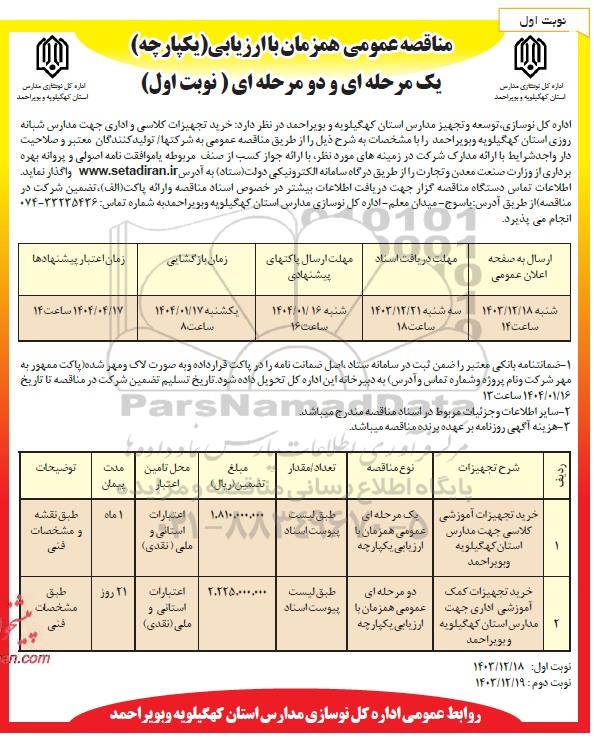 نوبت اول
مناقصه عمومی همزمان با ارزیابی(یکپارچه)
یک مرحله ای و دو مرحله ای ( نوبت اول)
اداره کل نوسازی مدارس
استان کهگیلویه و بویراحمد
اداره کل نوسازی مدارس
استان کهگیلویه و بویراحمد
اداره کل نوسازی،توسعه و تجهیز مدارس استان کهگیلویه و بویراحمد در نظر دارد: خرید تجهیزات کلاسی و اداری جهت مدارس شبانه
روزی استان کهگیلویه وبویراحمد را با مشخصات به شرح ذیل را از طریق مناقصه عمومی به شرکتها/ تولیدکنندگان معتبر و صلاحیت
دار واجدشرایط با ارائه مدارک شرکت در زمینه های مورد نظر، با ارائه جواز کسب از صنف مربوطه یاموافقت نامه اصولی و پروانه بهره
برداری از وزارت صنعت معدن وتجارت را از طریق درگاه سامانه الکترونیکی دولت(ستاد) به آدرس www.setadiran.ir واگذار نماید.
اطلاعات تماس دستگاه مناقصه گزار جهت دریافت اطلاعات بیشتر در خصوص اسناد مناقصه وارائه پاکت(الف)،تضمین شرکت در
مناقصه)از طریق آدرس:یاسوج-میدان معلم-اداره کل نوسازی مدارس استان کهگیلویه وبویراحمدبه شماره تماس: ۳۳۲۳۵۴۳۶-۰۷۴
انجام می پذیرد.
ارسال به صفحه اعلان عمومی
مهلت دریافت اسناد
مهلت ارسال پاکتهای پیشنهادی
زمان بازگشایی
زمان اعتبار پیشنهادها
شنبه ۱۴۰۳/۱۲/۱۸ ساعت۱۴
سه شنبه ۱۴۰۳/۱۲/۲۱ ساعت۱۸
شنبه ۱۴۰۴/۰۱/۱۶ ساعت۱۶
یکشنبه ۱۴۰۴/۰۱/۱۷ ساعت۸
۱۴۰۴/۰۴/۱۷ ساعت۱۴
۱-ضمانتنامه بانکی معتبر را ضمن ثبت در سامانه ستاد ،اصل ضمانت نامه را در پاکت قرارداده وبه صورت لاک ومهر شده(پاکت ممهور به
مهر شرکت ونام پروژه وشماره تماس وآدرس) به دبیرخانه این اداره کل تحویل داده شود.تاریخ تسلیم تضمین شرکت در مناقصه تا تاریخ
۱۴۰۴/۰۱/۱۶ ساعت۱۳
۲-سایر اطلاعات وجزئیات مربوط در اسناد مناقصه مندرج میباشد.
۳-هزینه آگهی روزنامه بر عهده برنده مناقصه میباشد.
ParsNamadData
پایگاه اطلاع رسانی مناقصه و مزایده
۰۲۱-۸۸۳۴۹۶۷۰-۵
ردیف
شرح تجهیزات
نوع مناقصه
تعداد/مقدار
مبلغ تضمین(ریال)
محل تامین اعتبار
مدت پیمان
توضیحات
۱
خرید تجهیزات آموزشی کلاسی جهت مدارس استان کهگیلویه وبویراحمد
یک مرحله ای عمومی همزمان با ارزیابی یکپارچه
طبق لیست پیوست اسناد
۱،۸۱۰،۰۰۰،۰۰۰
اعتبارات استانی و ملی (نقدی)
۱ ماه
طبق نقشه و مشخصات فنی
۲
خرید تجهیزات کمک آموزشی اداری جهت مدارس استان کهگیلویه و بویراحمد
دو مرحله ای عمومی همزمان با ارزیابی یکپارچه
طبق لیست پیوست اسناد
۲،۲۲۵،۰۰۰،۰۰۰
اعتبارات استانی و ملی (نقدی)
۲۱ روز
طبق مشخصات فنی
نوبت اول: ۱۴۰۳/۱۲/۱۸
نوبت دوم : ۱۴۰۳/۱۲/۱۹
روابط عمومی اداره کل نوسازی مدارس استان کهگیلویه وبویراحمد